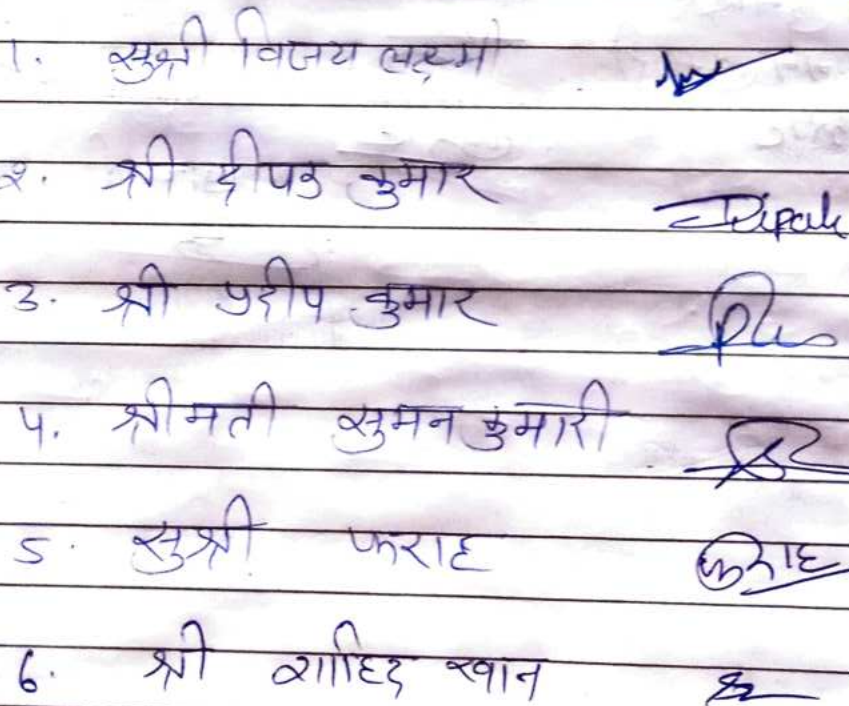 1. सुश्री विजय लक्ष्मी
२. श्री दीपक कुमार Dipak
3. श्री प्रदीप कुमार
4. श्रीमती सुमन कुमारी
5. सुश्री फराह फराह
6. श्री शाहिद खान